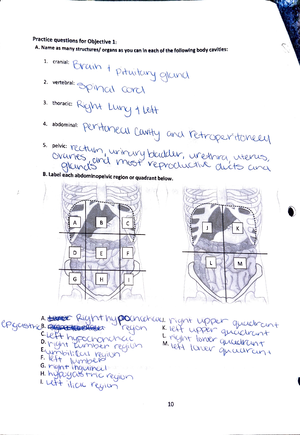 Practice questions for Objective 1:
A. Name as many structures/ organs as you can in each of the following body cavities:
1. cranial: Brain + pituitary gland
2. vertebral: Spinal cord
3. thoracic: Right Lung + left
4. abdominal: peritoneal cavity and retroperitoneal
5. pelvic: rectum, urinary bladder, urethra, uterus,
ovaries, and most reproductive ducts and
glands
B. Label each abdominopelvic region or quadrant below.
A B C
D E F
G H I
J K
L M
A. Right hypochondriac
B. epigastric region
C. Left hypochondriac
D. right lumbar region
E. umbilical region
F. left lumbar
G. right inguinal
H. hypogastric region
I. left iliac region
right upper quadrant
K. left upper quadrant
L. right lower quadrant
M. left lower quadrant
10